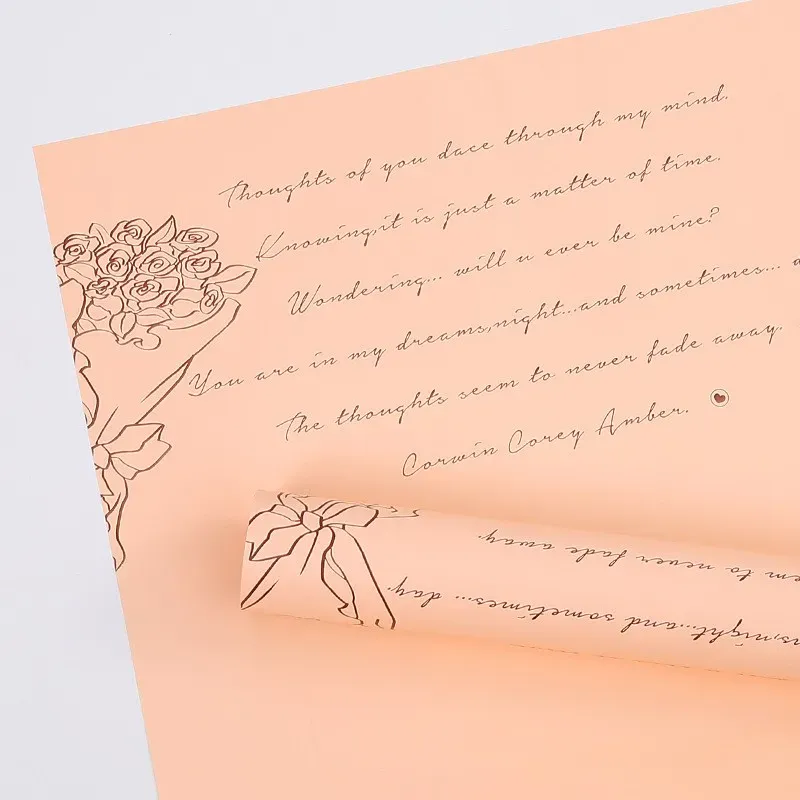 Thoughts of you dace through my mind.
Knowing,it is just a matter of time.
Wondering... will u ever be mine?
You are in my dreams,night...and sometimes... d
The thoughts seem to never fade away.
Corwin Corey Amber.
em to never fade away.
s,night...and sometimes... day.